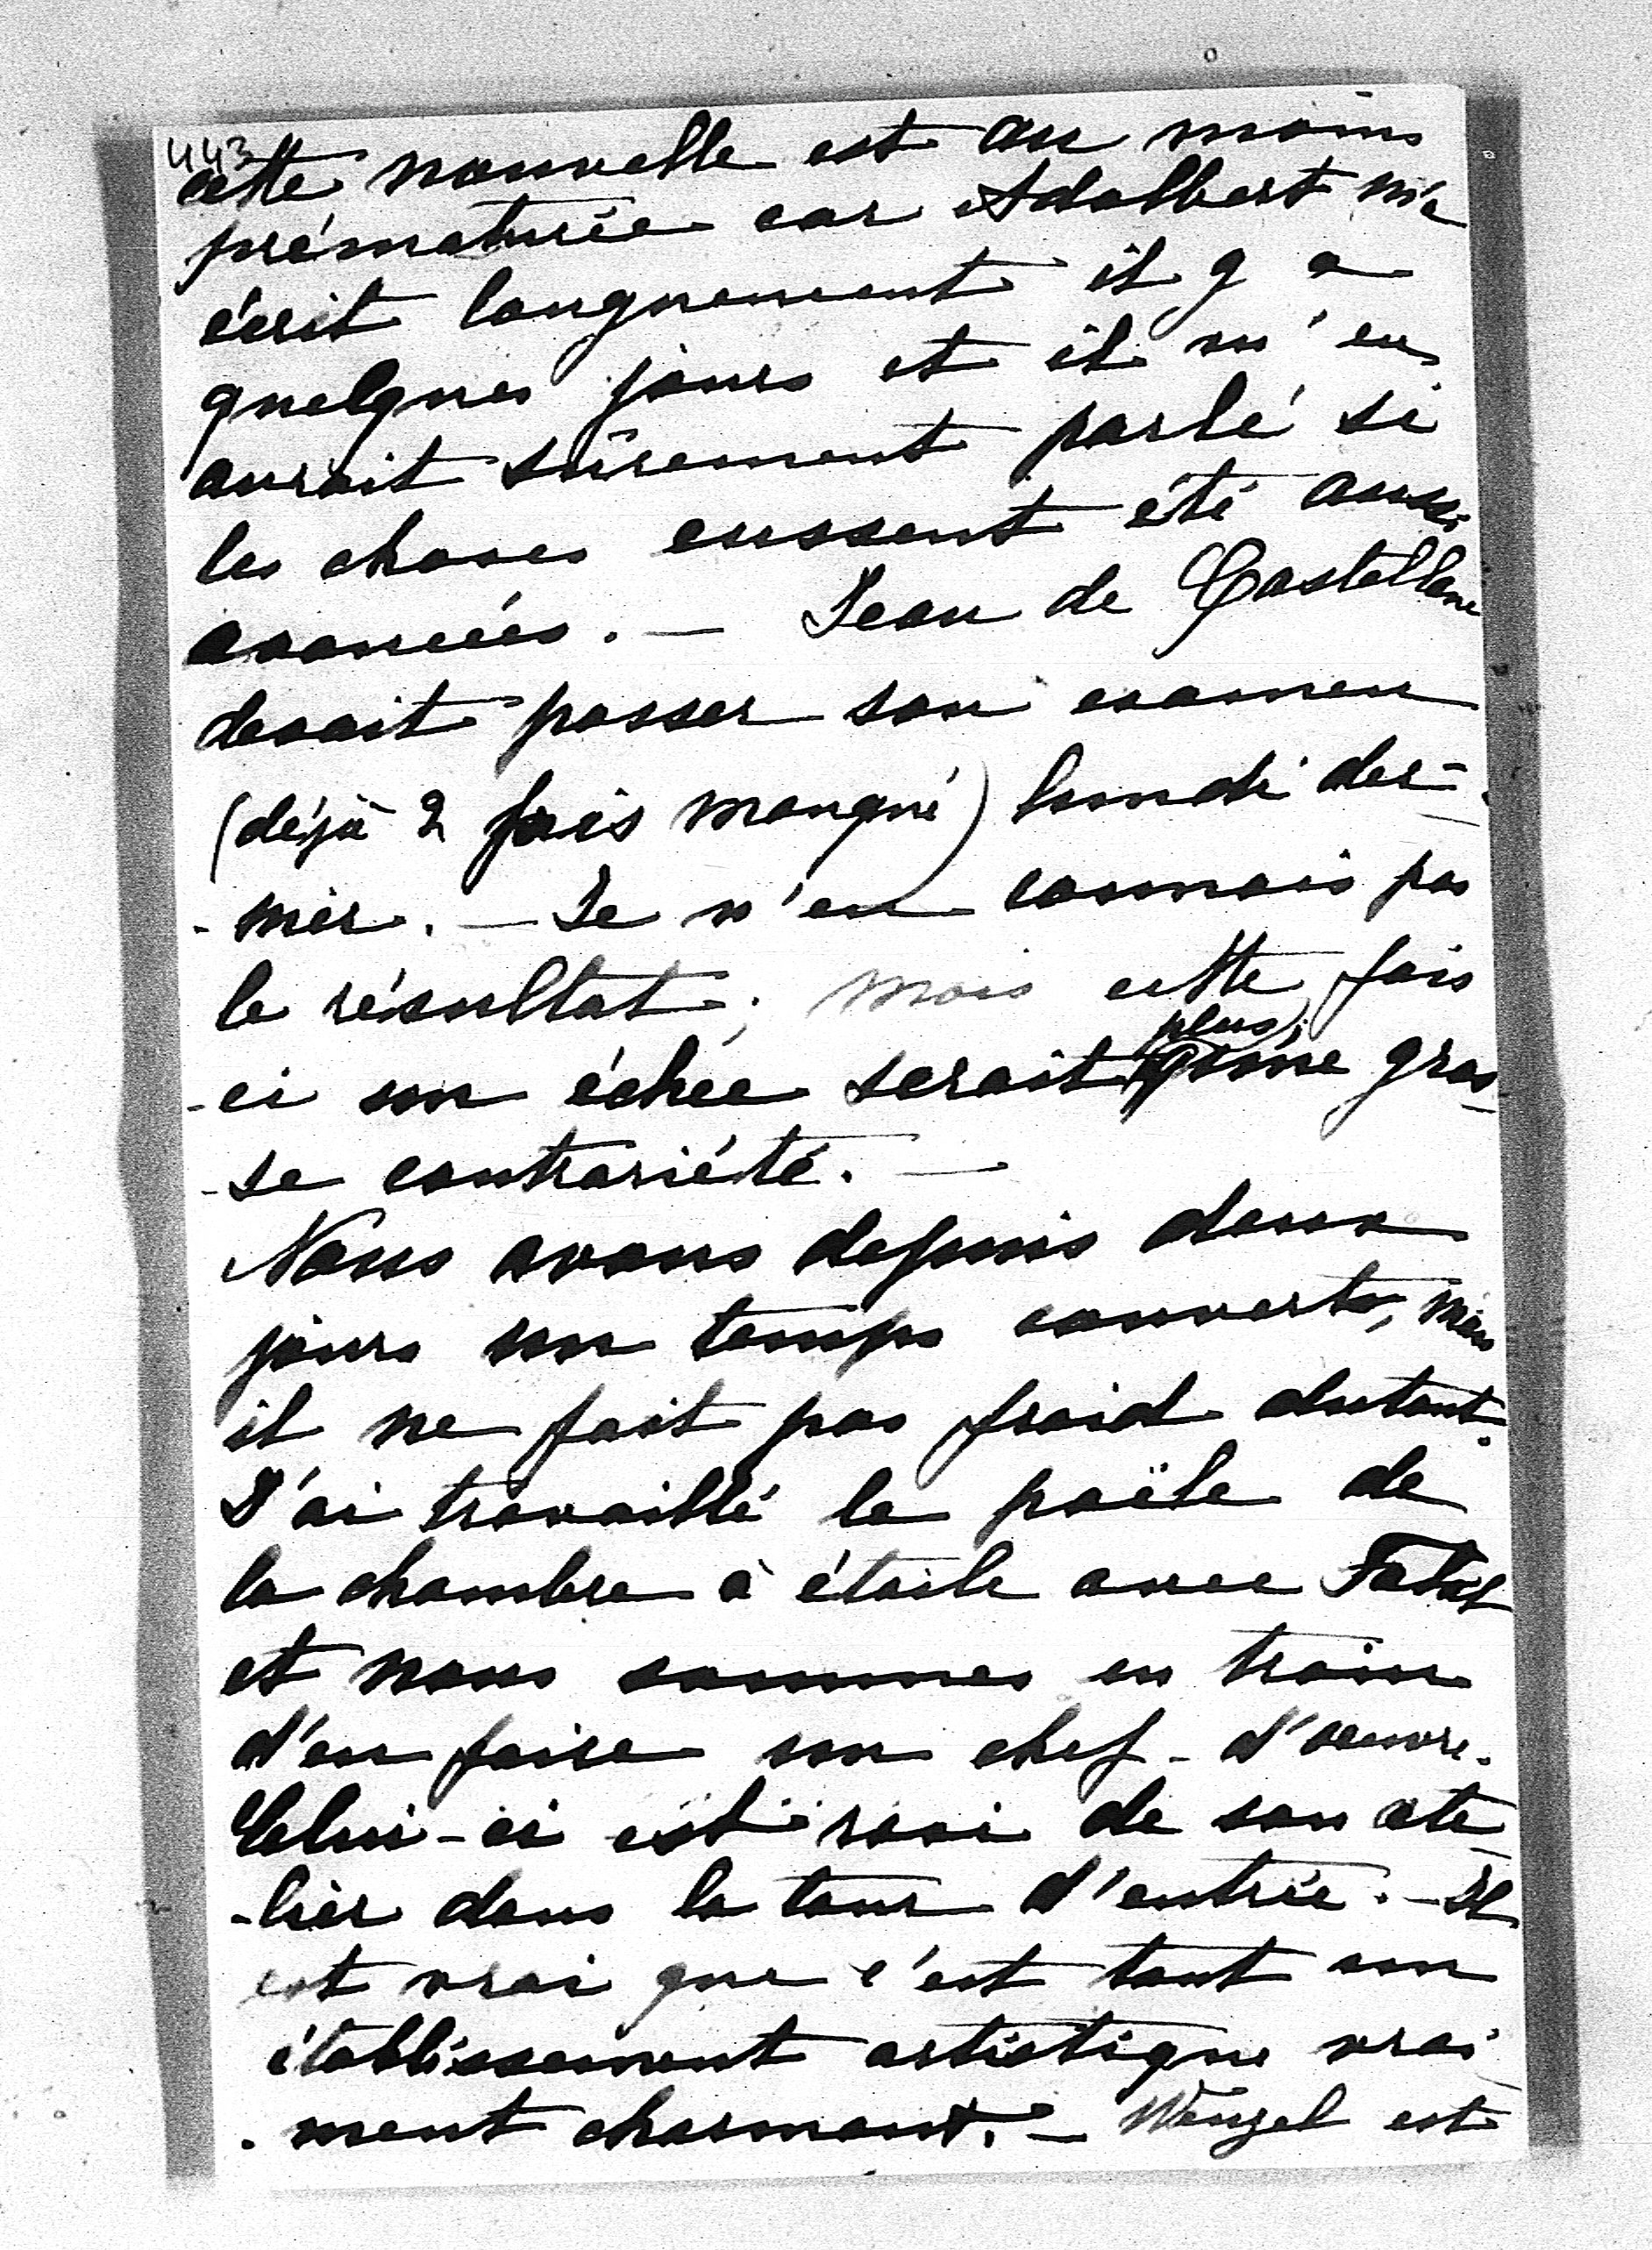 443
cette nouvelle est au moins
prématurée car Adalbert m'a
écrit longuement il y a
quelques jours et il m'en
aurait sûrement parlé si
les choses eussent été aussi
avancées. — Jean de Castellane
devait passer son examen
(déjà 2 fois manqué) lundi der-
-nier. — Je n'en connais pas
le résultat; mais cette fois
-ci un échec serait plus qu'une gros-
-se contrariété. —
Nous avons depuis deux
jours un temps couvert, mais
il ne fait pas froid du tout.
J'ai travaillé le poële de
la chambre à étoile avec
et nous sommes en train
d'en faire un chef-d'oeuvre.
Celui-ci est ravi de son ate-
-lier dans la tour d'entrée. — Il
est vrai que c'est tout un
établissement artistique vrai-
-ment charmant. — Wenzel est